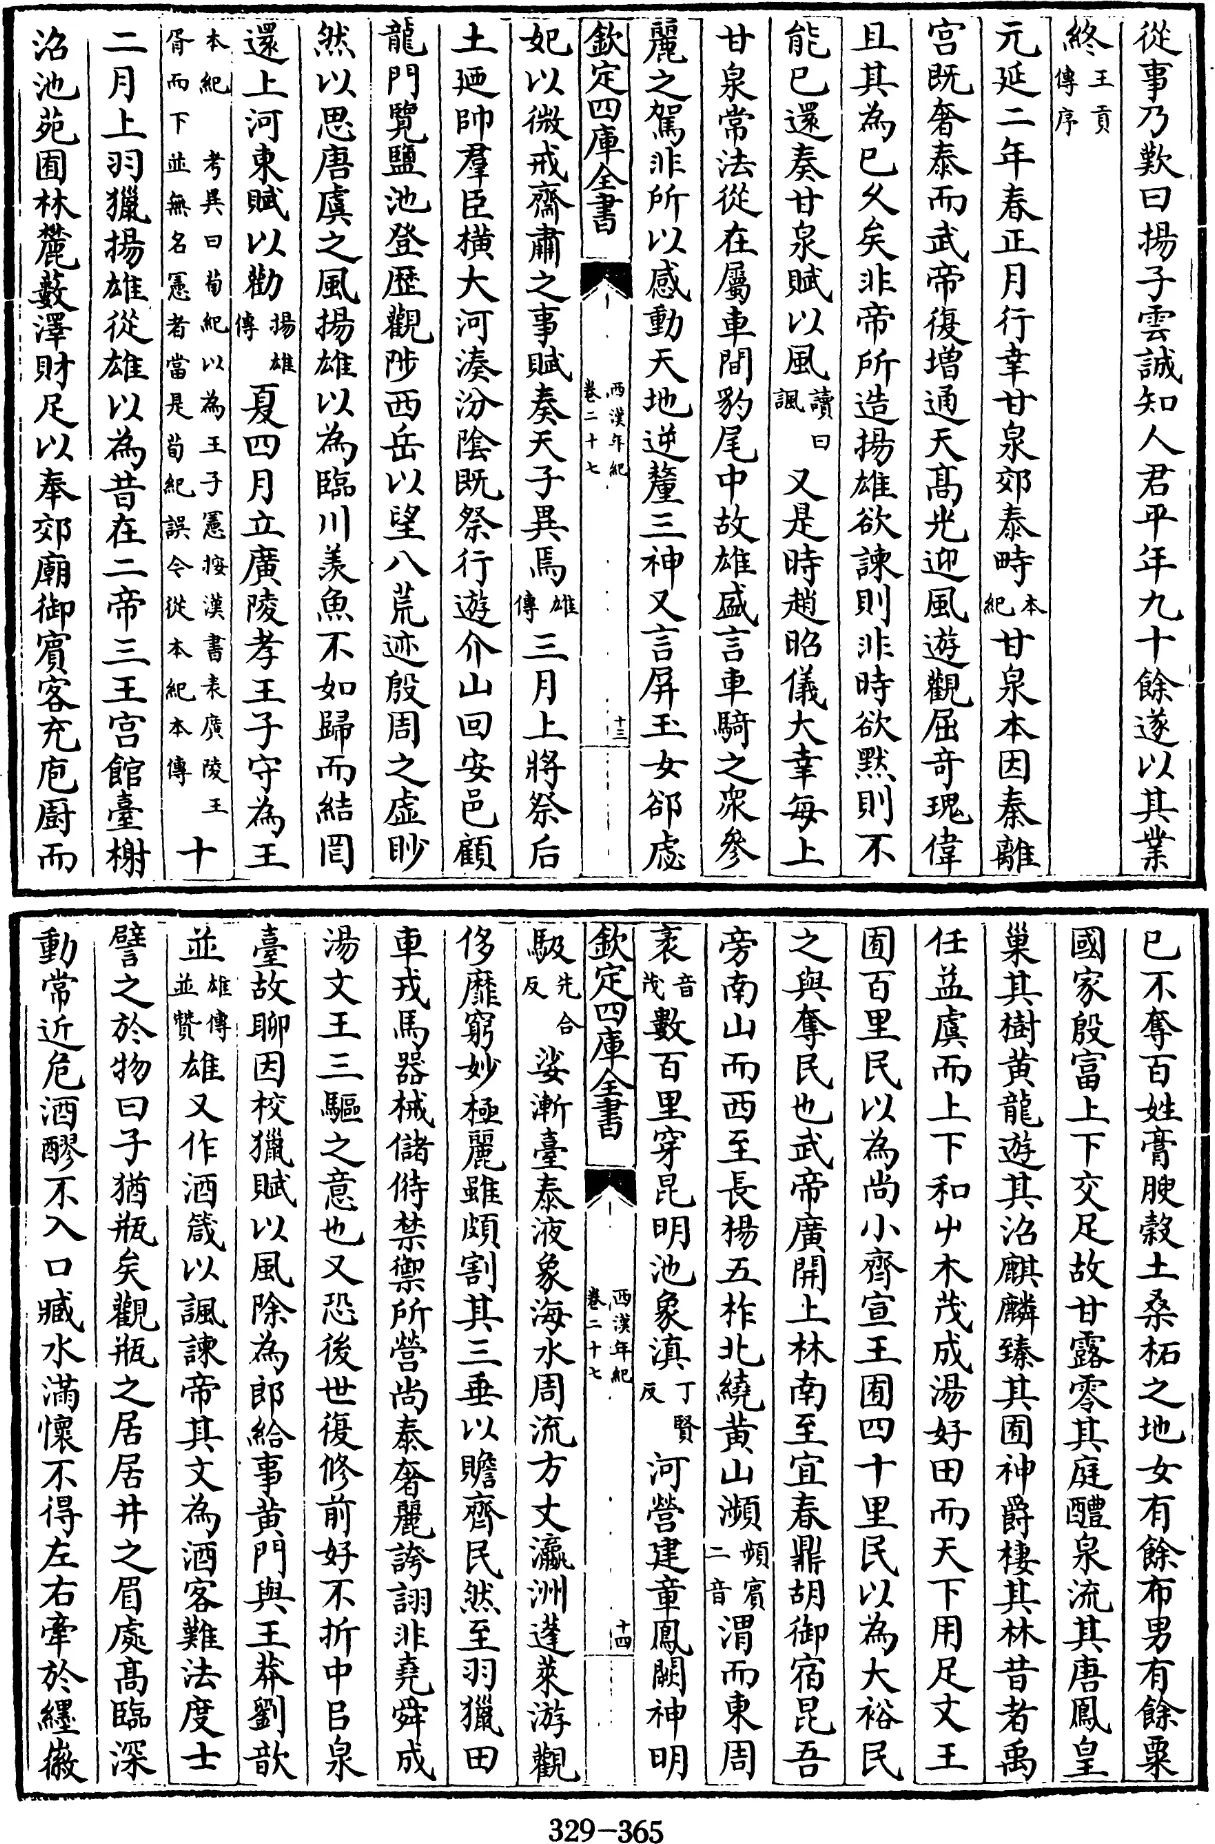 從事乃歎曰揚子雲誠知人君平年九十餘遂以其業
終王貢傳序
元延二年春正月行幸甘泉郊泰畤本紀甘泉本因秦離
宮既奢泰而武帝復增通天髙光迎風遊觀屈竒瑰偉
且其為已久矣非帝所造揚雄欲諫則非時欲默則不
能已還奏甘泉賦以風讀曰諷又是時趙昭儀大幸每上
甘泉常法從在屬車間豹尾中故雄盛言車騎之衆參
麗之駕非所以感動天地逆釐三神又言屏玉女郤虙
欽定四庫全書
西漢年紀
卷二十七
十三
妃以微戒齋肅之事賦奏天子異焉雄傳三月上將祭后
土廼帥羣臣橫大河湊汾陰既祭行遊介山回安邑顧
龍門覽鹽池登歴觀陟西岳以望八荒迹殷周之虛眇
然以思唐虞之風揚雄以為臨川羨魚不如歸而結罔
還上河東賦以勸揚雄傳夏四月立廣陵孝王子守為王
本紀 考異曰荀紀以為王子憲按漢書表廣陵王胥而下並無名憲者當是荀紀誤今從本紀本傳十
二月上羽獵揚雄從雄以為昔在二帝三王宮館臺榭
沼池苑囿林麓藪澤財足以奉郊廟御賓客充庖厨而
已不奪百姓膏腴穀土桑柘之地女有餘布男有餘粟
國家殷富上下交足故甘露零其庭醴泉流其唐鳳皇
巢其樹黄龍遊其沼麒麟臻其囿神爵棲其林昔者禹
任益虞而上下和屮木茂成湯好田而天下用足文王
囿百里民以為尚小齊宣王囿四十里民以為大裕民
之與奪民也武帝廣開上林南至宜春鼎胡御宿昆吾
旁南山而西至長楊五柞北繞黄山瀕頻賓二音渭而東周
袤音茂數百里穿昆明池象滇丁賢反河營建章鳳闕神明
欽定四庫全書
西漢年紀
卷二十七
十四
馺先合反娑漸臺泰液象海水周流方丈瀛洲蓬萊游觀
侈靡窮妙極麗雖頗割其三垂以贍齊民然至羽獵田
車戎馬器械儲偫禁禦所營尚泰奢麗誇詡非堯舜成
湯文王三驅之意也又恐後世復修前好不折中㠯泉
臺故聊因校獵賦以風除為郎給事黄門與王莽劉歆
並雄傳並贊雄又作酒箴以諷諫帝其文為酒客難法度士
譬之於物曰子猶瓶矣觀瓶之居居井之眉處髙臨深
動常近危酒醪不入口臧水滿懷不得左右牽於纆徽
329-365